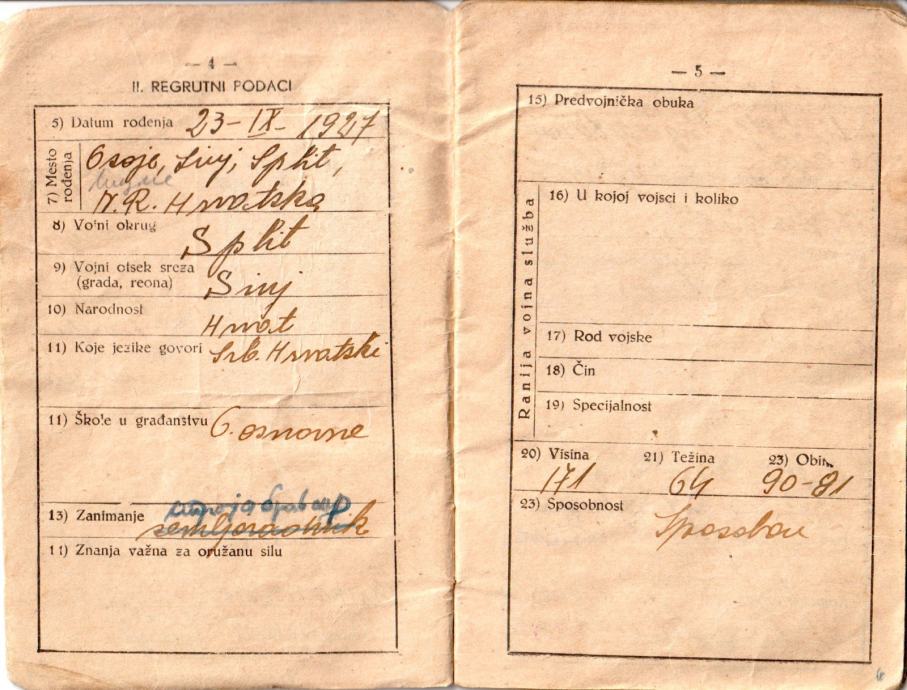 — 4 —
II. REGRUTNI PODACI
5) Datum rođenja 23-IX-1927
7) Mesto rođenja
Osoje, Sinj, Split,
N.R. Hrvatska
8) Vojni okrug Split
9) Vojni otsek sreza
(grada, reona) Sinj
10) Narodnost Hrvat
11) Koje jezike govori Srb. Hrvatski
11) Škole u građanstvu 6. osnovne
13) Zanimanje zemljoradnik
11) Znanja važna za oružanu silu
— 5 —
15) Predvojnička obuka
Ranija vojna služba
16) U kojoj vojsci i koliko
17) Rod vojske
18) Čin
19) Specijalnost
20) Visina 21) Težina 23) Obim
171 64 90-81
23) Sposobnost
Sposoban